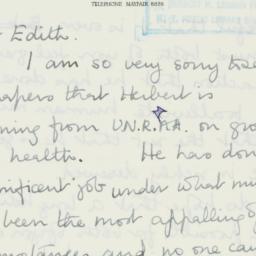 TELEPHONE MAYFAIR 8838
Edith.
I am so very sorry to see
papers that Herbert is
ning from U.N.R.R.A. on gro
health. He has don
nificent job under what mu
been the most appalling
and no one can